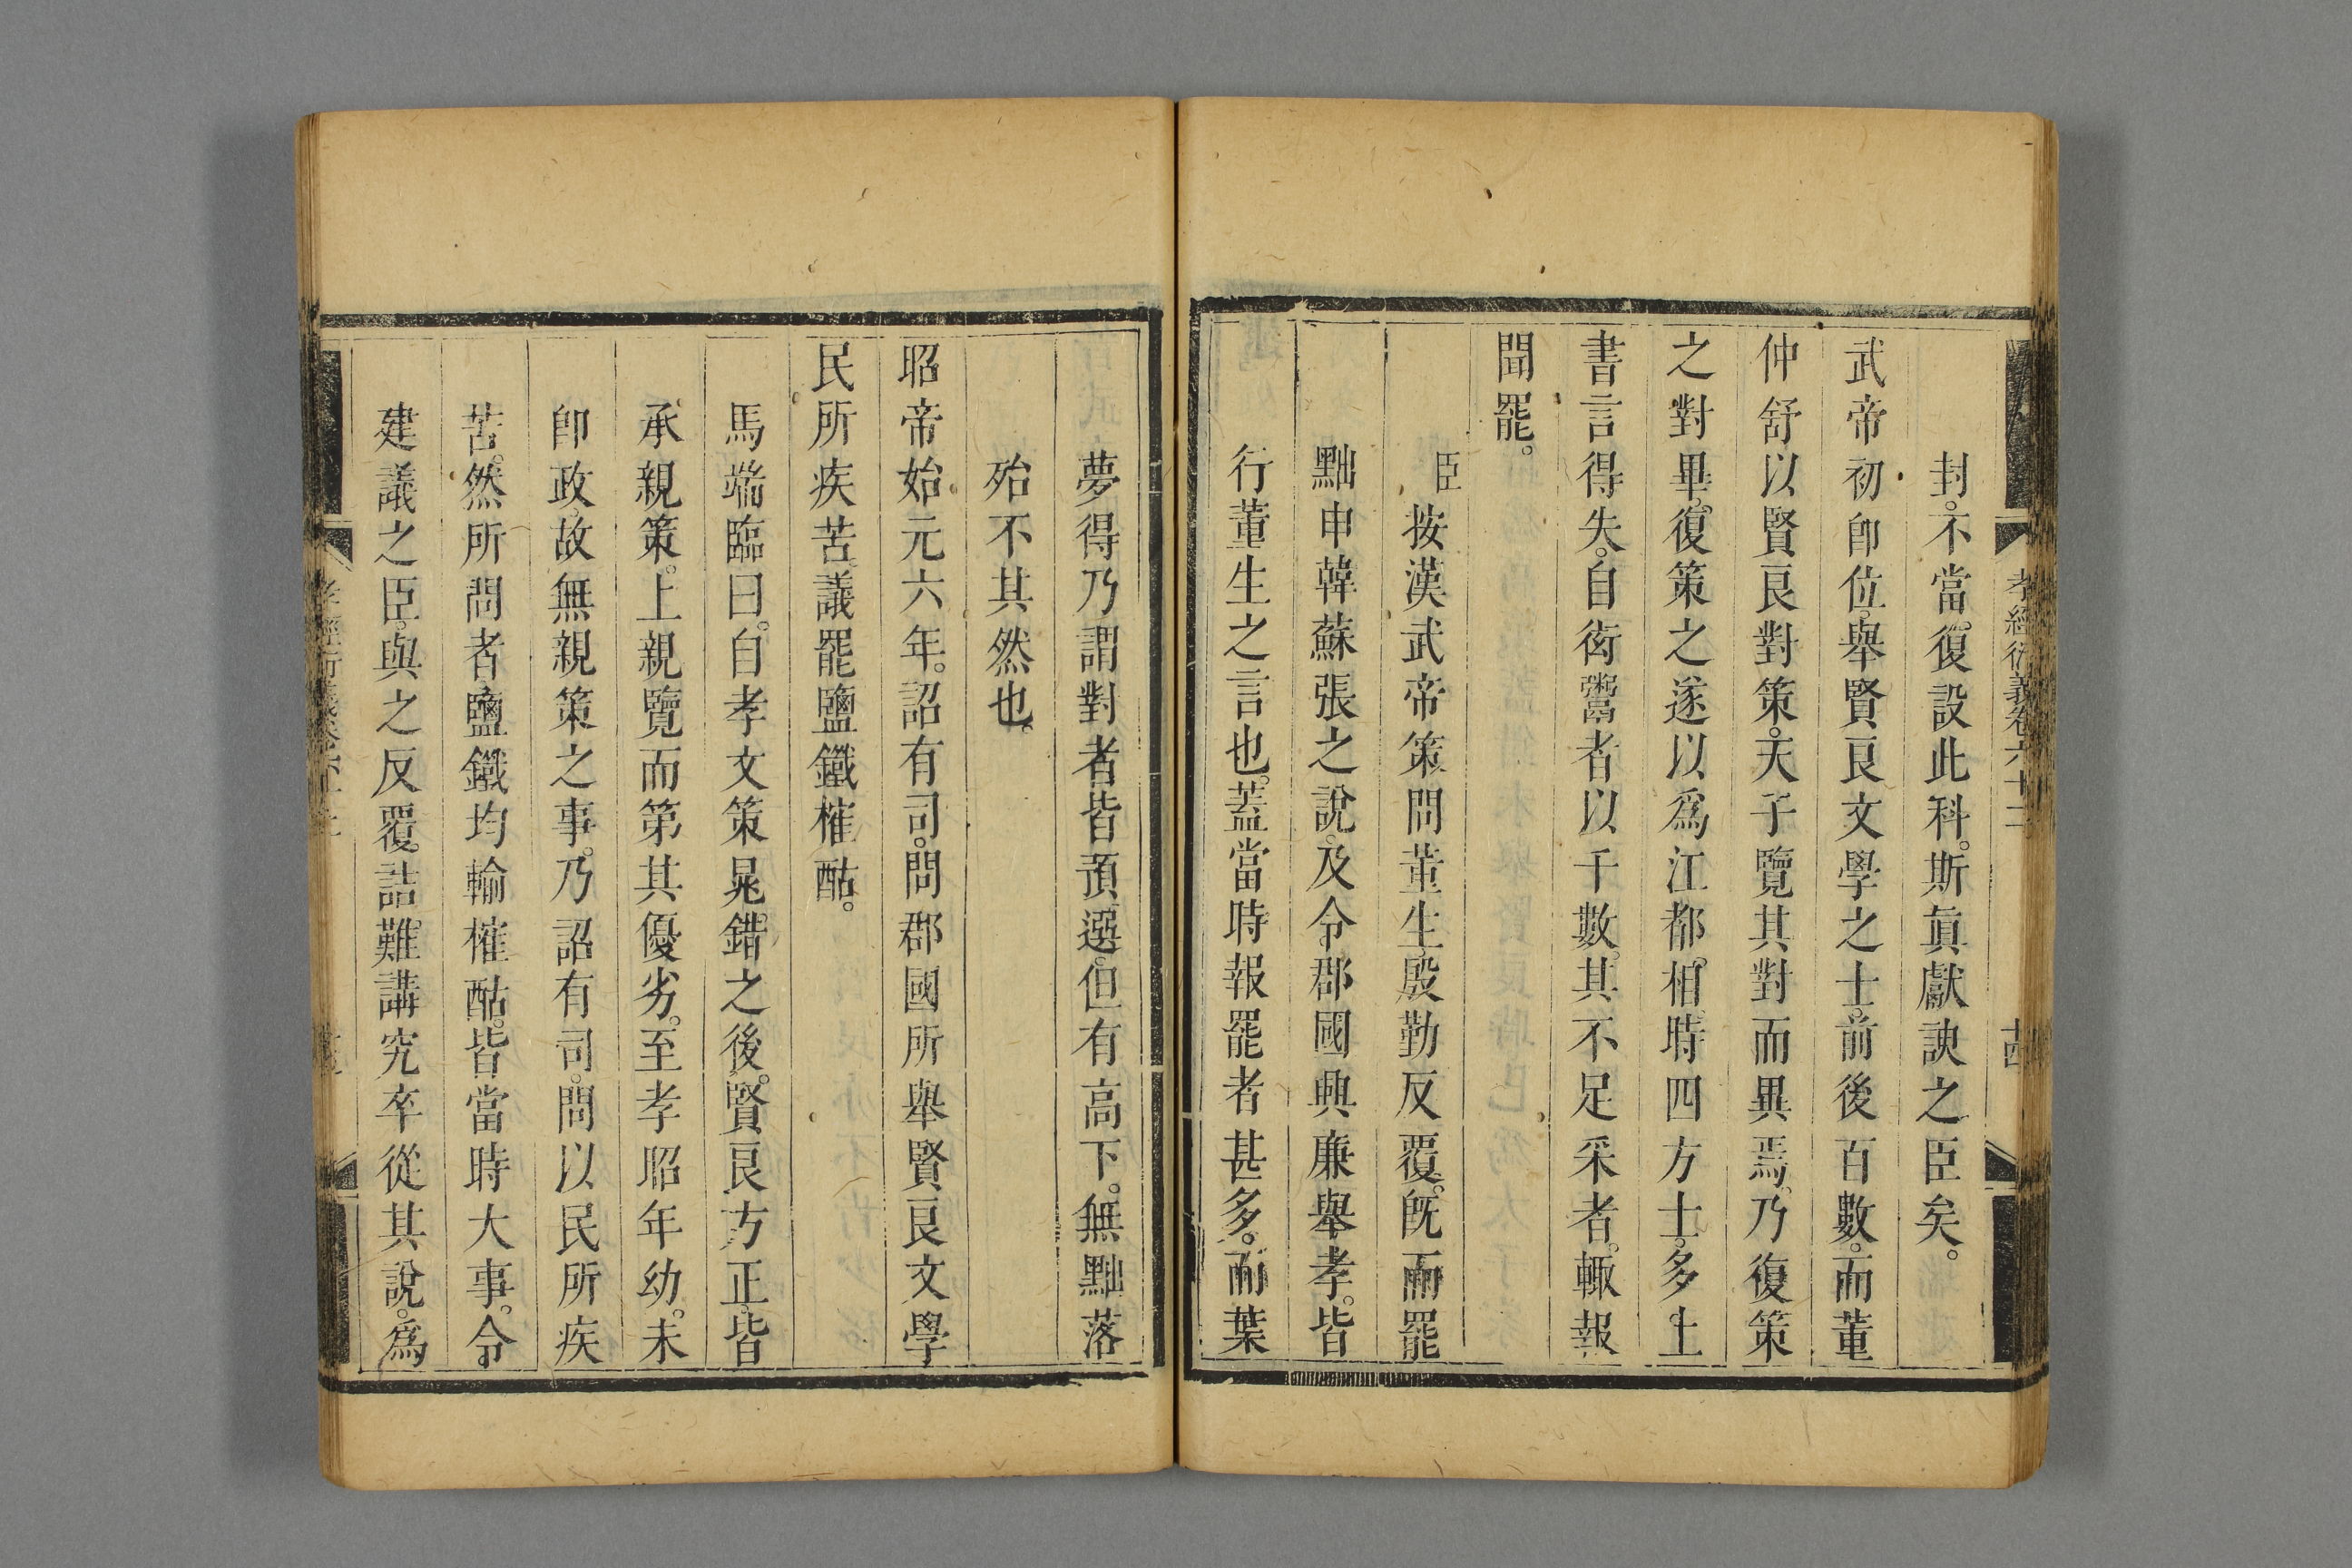 孝經衍義卷六十二　十四
封。不當。復設此科。斯眞獻諛之臣矣。
武帝初卽位。舉賢良文學之士。前後百數。而董
仲舒以賢良對策。天子覽其對而異焉。乃復策
之對畢。復策之。遂以爲江都相。時四方士。多上
書言得失。自衒鬻者以千數。其不足采者。輒報
聞罷。
臣按漢武帝策問董生。殷勤反覆。旣而罷
黜申韓蘇張之說。及令郡國興廉舉孝。皆
行董生之言也。蓋當時報罷者甚多。而葉
夢得乃謂對者皆預選。但有高下。無黜落
殆不其然也。
昭帝始元六年。詔有司。問郡國所舉賢良文學
民所疾苦。議罷鹽鐵榷酤。
馬端臨曰。自孝文策晁錯之後。賢良方正。皆
承親策。上親覽而第其優劣。至孝昭年幼。未
卽政。故無親策之事。乃詔有司。問以民所疾
苦。然所問者鹽鐵均輸榷酤。皆當時大事。令
建議之臣。與之反覆。詰難講究。卒從其說。爲